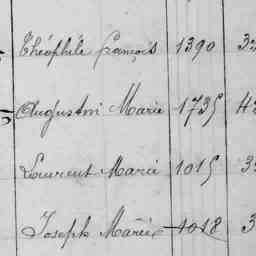 Théophile François 1390
Augustin Marie 1735
Laurent Marie 1015
Joseph Marie 1018